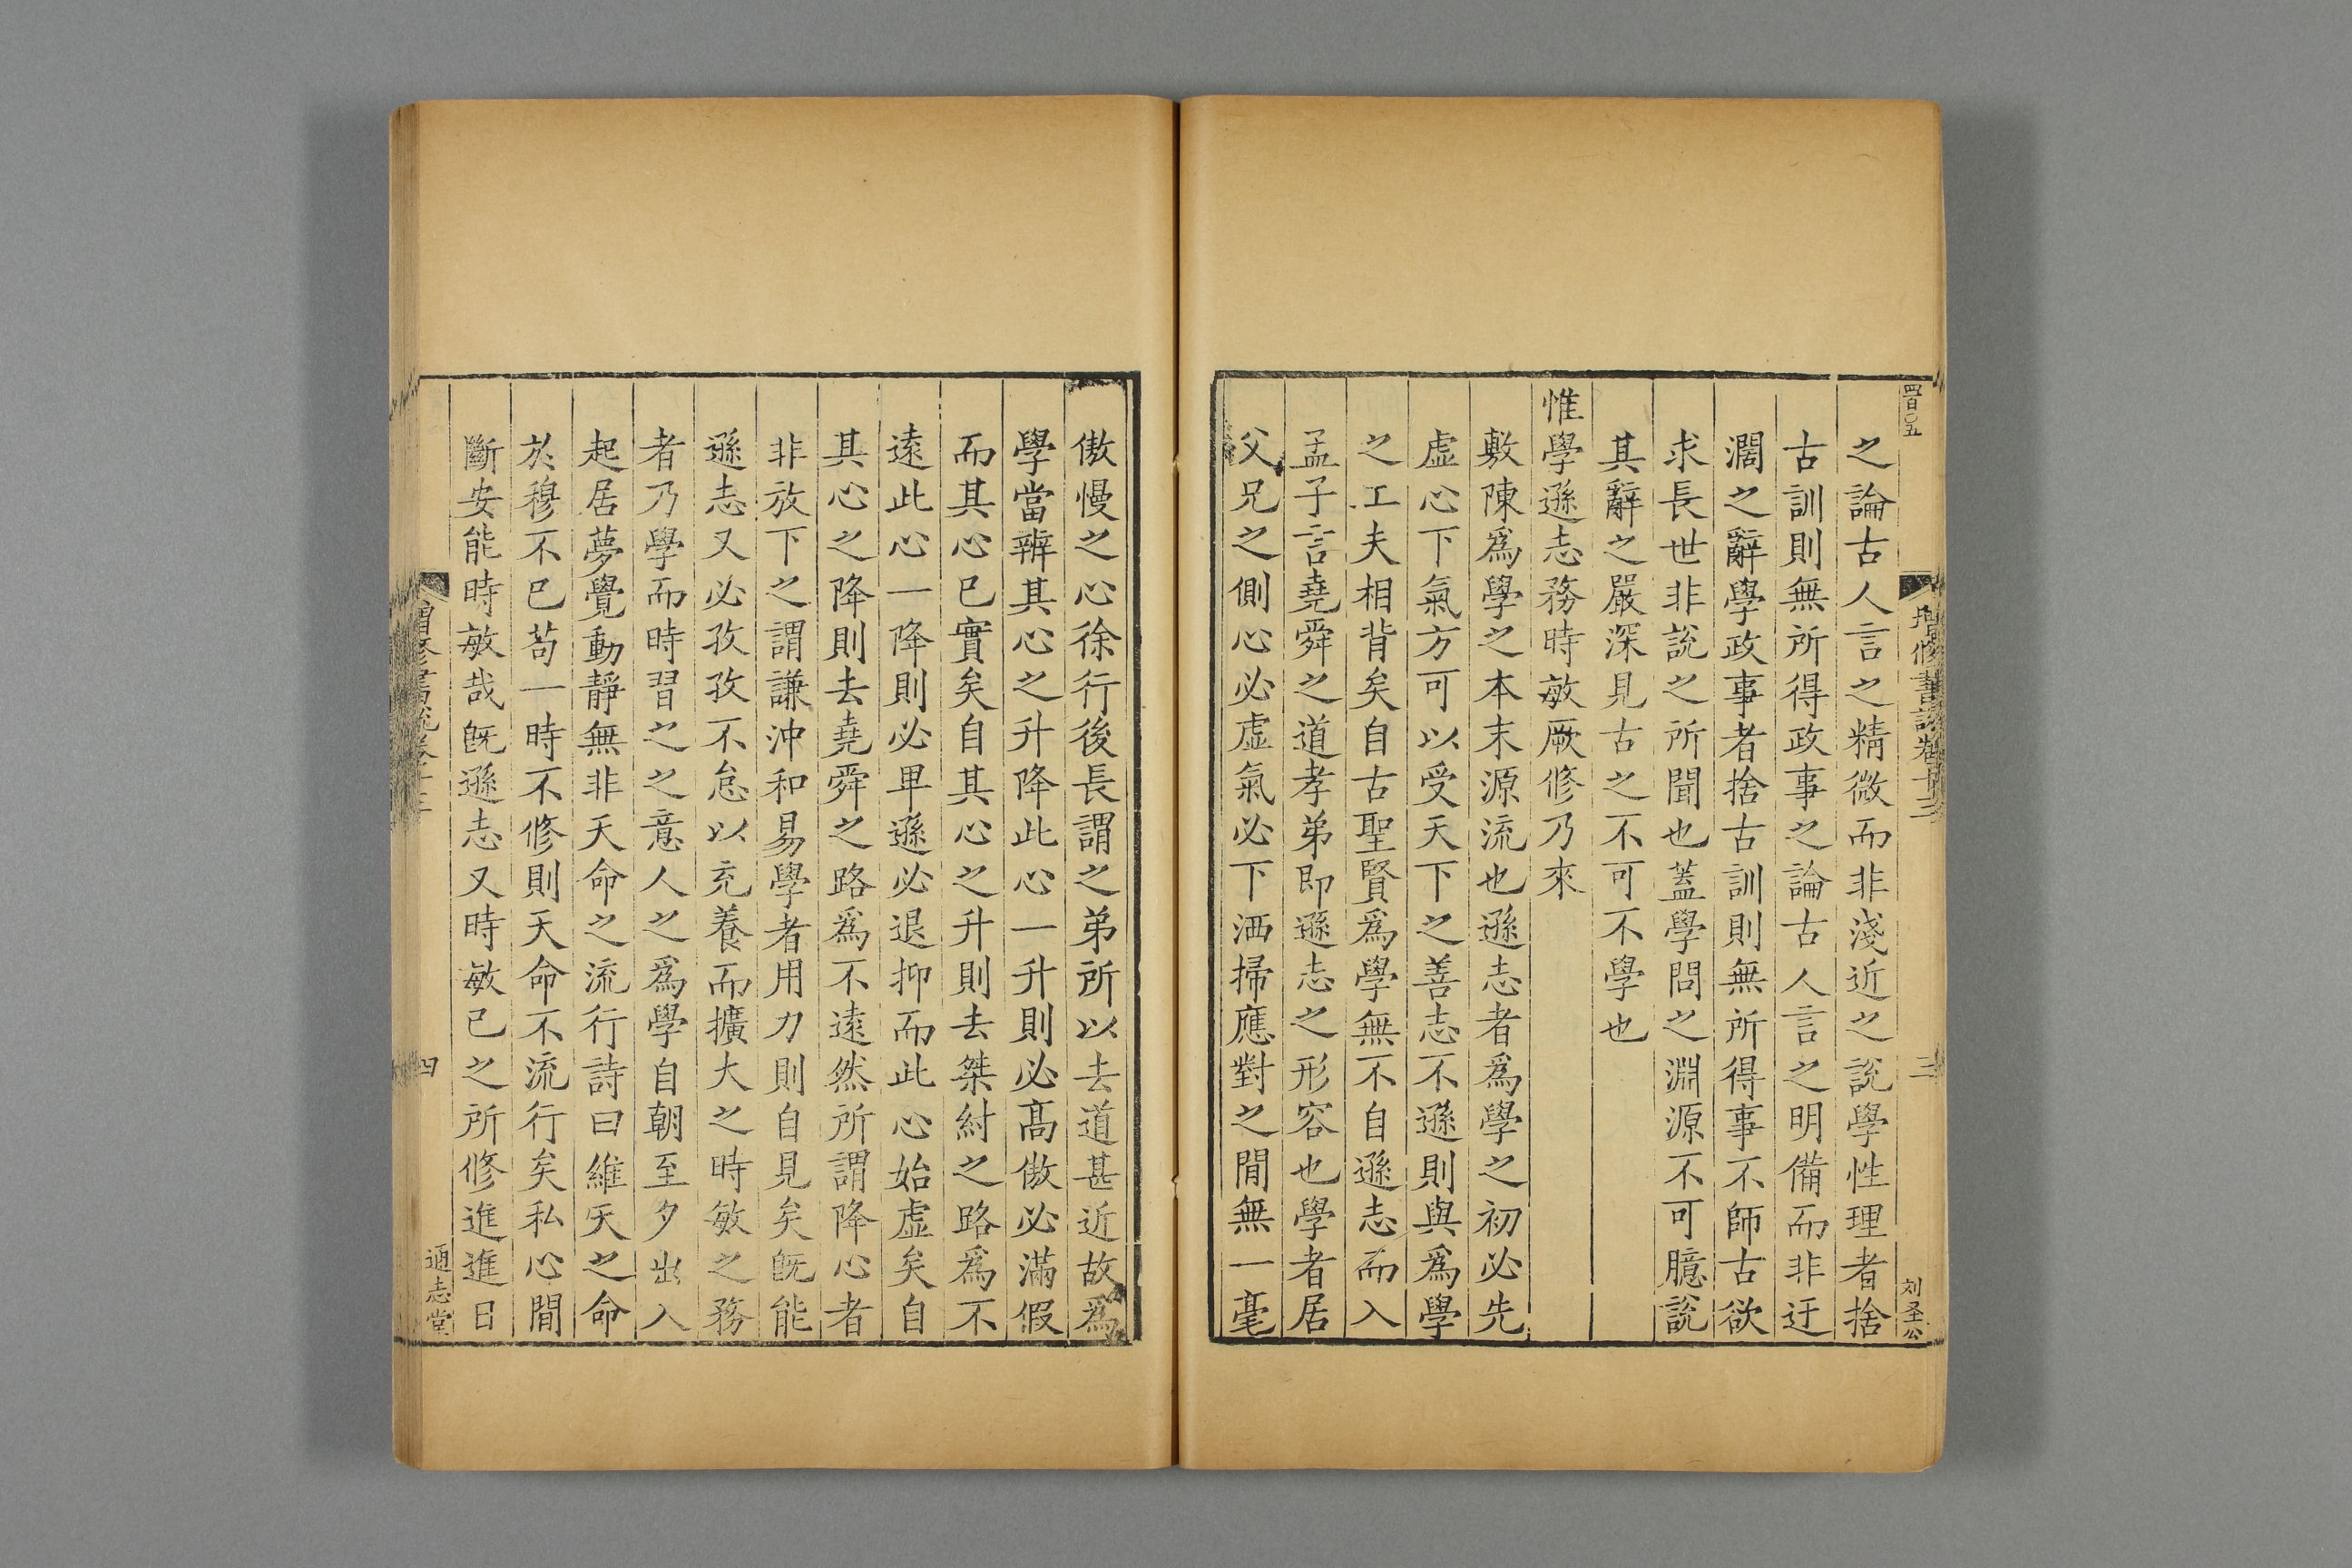 四百〇五
增修書說卷十三
三
刘圣公
之論古人言之精微而非淺近之說學性理者捨
古訓則無所得政事之論古人言之明備而非迂
濶之辭學政事者捨古訓則無所得事不師古欲
求長世非說之所聞也蓋學問之淵源不可臆說
其辭之嚴深見古之不可不學也
惟學遜志務時敏厥修乃來
敷陳爲學之本末源流也遜志者爲學之初必先
虛心下氣方可以受天下之善志不遜則與爲學
之工夫相背矣自古聖賢爲學無不自遜志而入
孟子言堯舜之道孝弟卽遜志之形容也學者居
父兄之側心必虛氣必下洒掃應對之間無一毫
傲慢之心徐行後長謂之弟所以去道甚近故爲
學當辨其心之升降此心一升則必髙傲必滿假
而其心已實矣自其心之升則去桀紂之路爲不
遠此心一降則必卑遜必退抑而此心始虛矣自
其心之降則去堯舜之路爲不遠然所謂降心者
非放下之謂謙沖和易學者用力則自見矣旣能
遜志又必孜孜不怠以充養而擴大之時敏之務
者乃學而時習之之意人之爲學自朝至夕出入
起居夢覺動靜無非天命之流行詩曰維天之命
於穆不已苟一時不修則天命不流行矣私心間
斷安能時敏哉旣遜志又時敏已之所修進進日
增修書說卷十三
四
通志堂